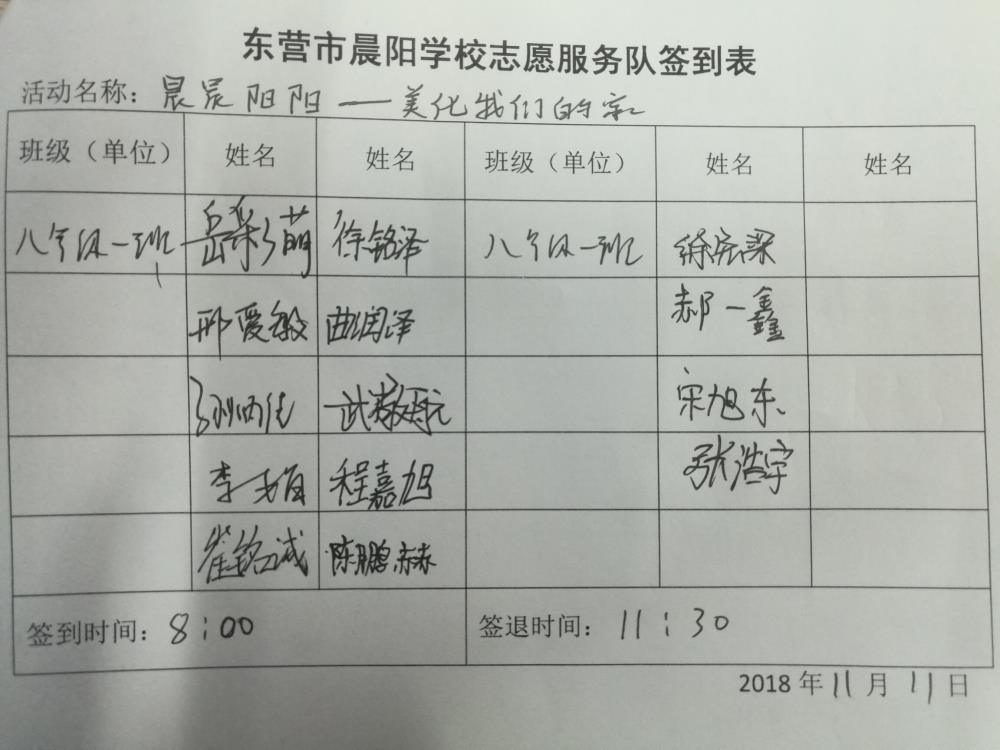 东营市晨阳学校志愿服务队签到表
活动名称：晨晨阳阳——美化我们的家
班级（单位） 姓名 姓名 班级（单位） 姓名 姓名
八年级一班 岳彩萌 徐铭泽 八年级一班
邢爱敏 曲润泽 郝一鑫
宋旭东
李 程嘉旭 张浩宇
崔铭诚 陈鹏赫
签到时间：8:00 签退时间：11:30
2018年11月11日